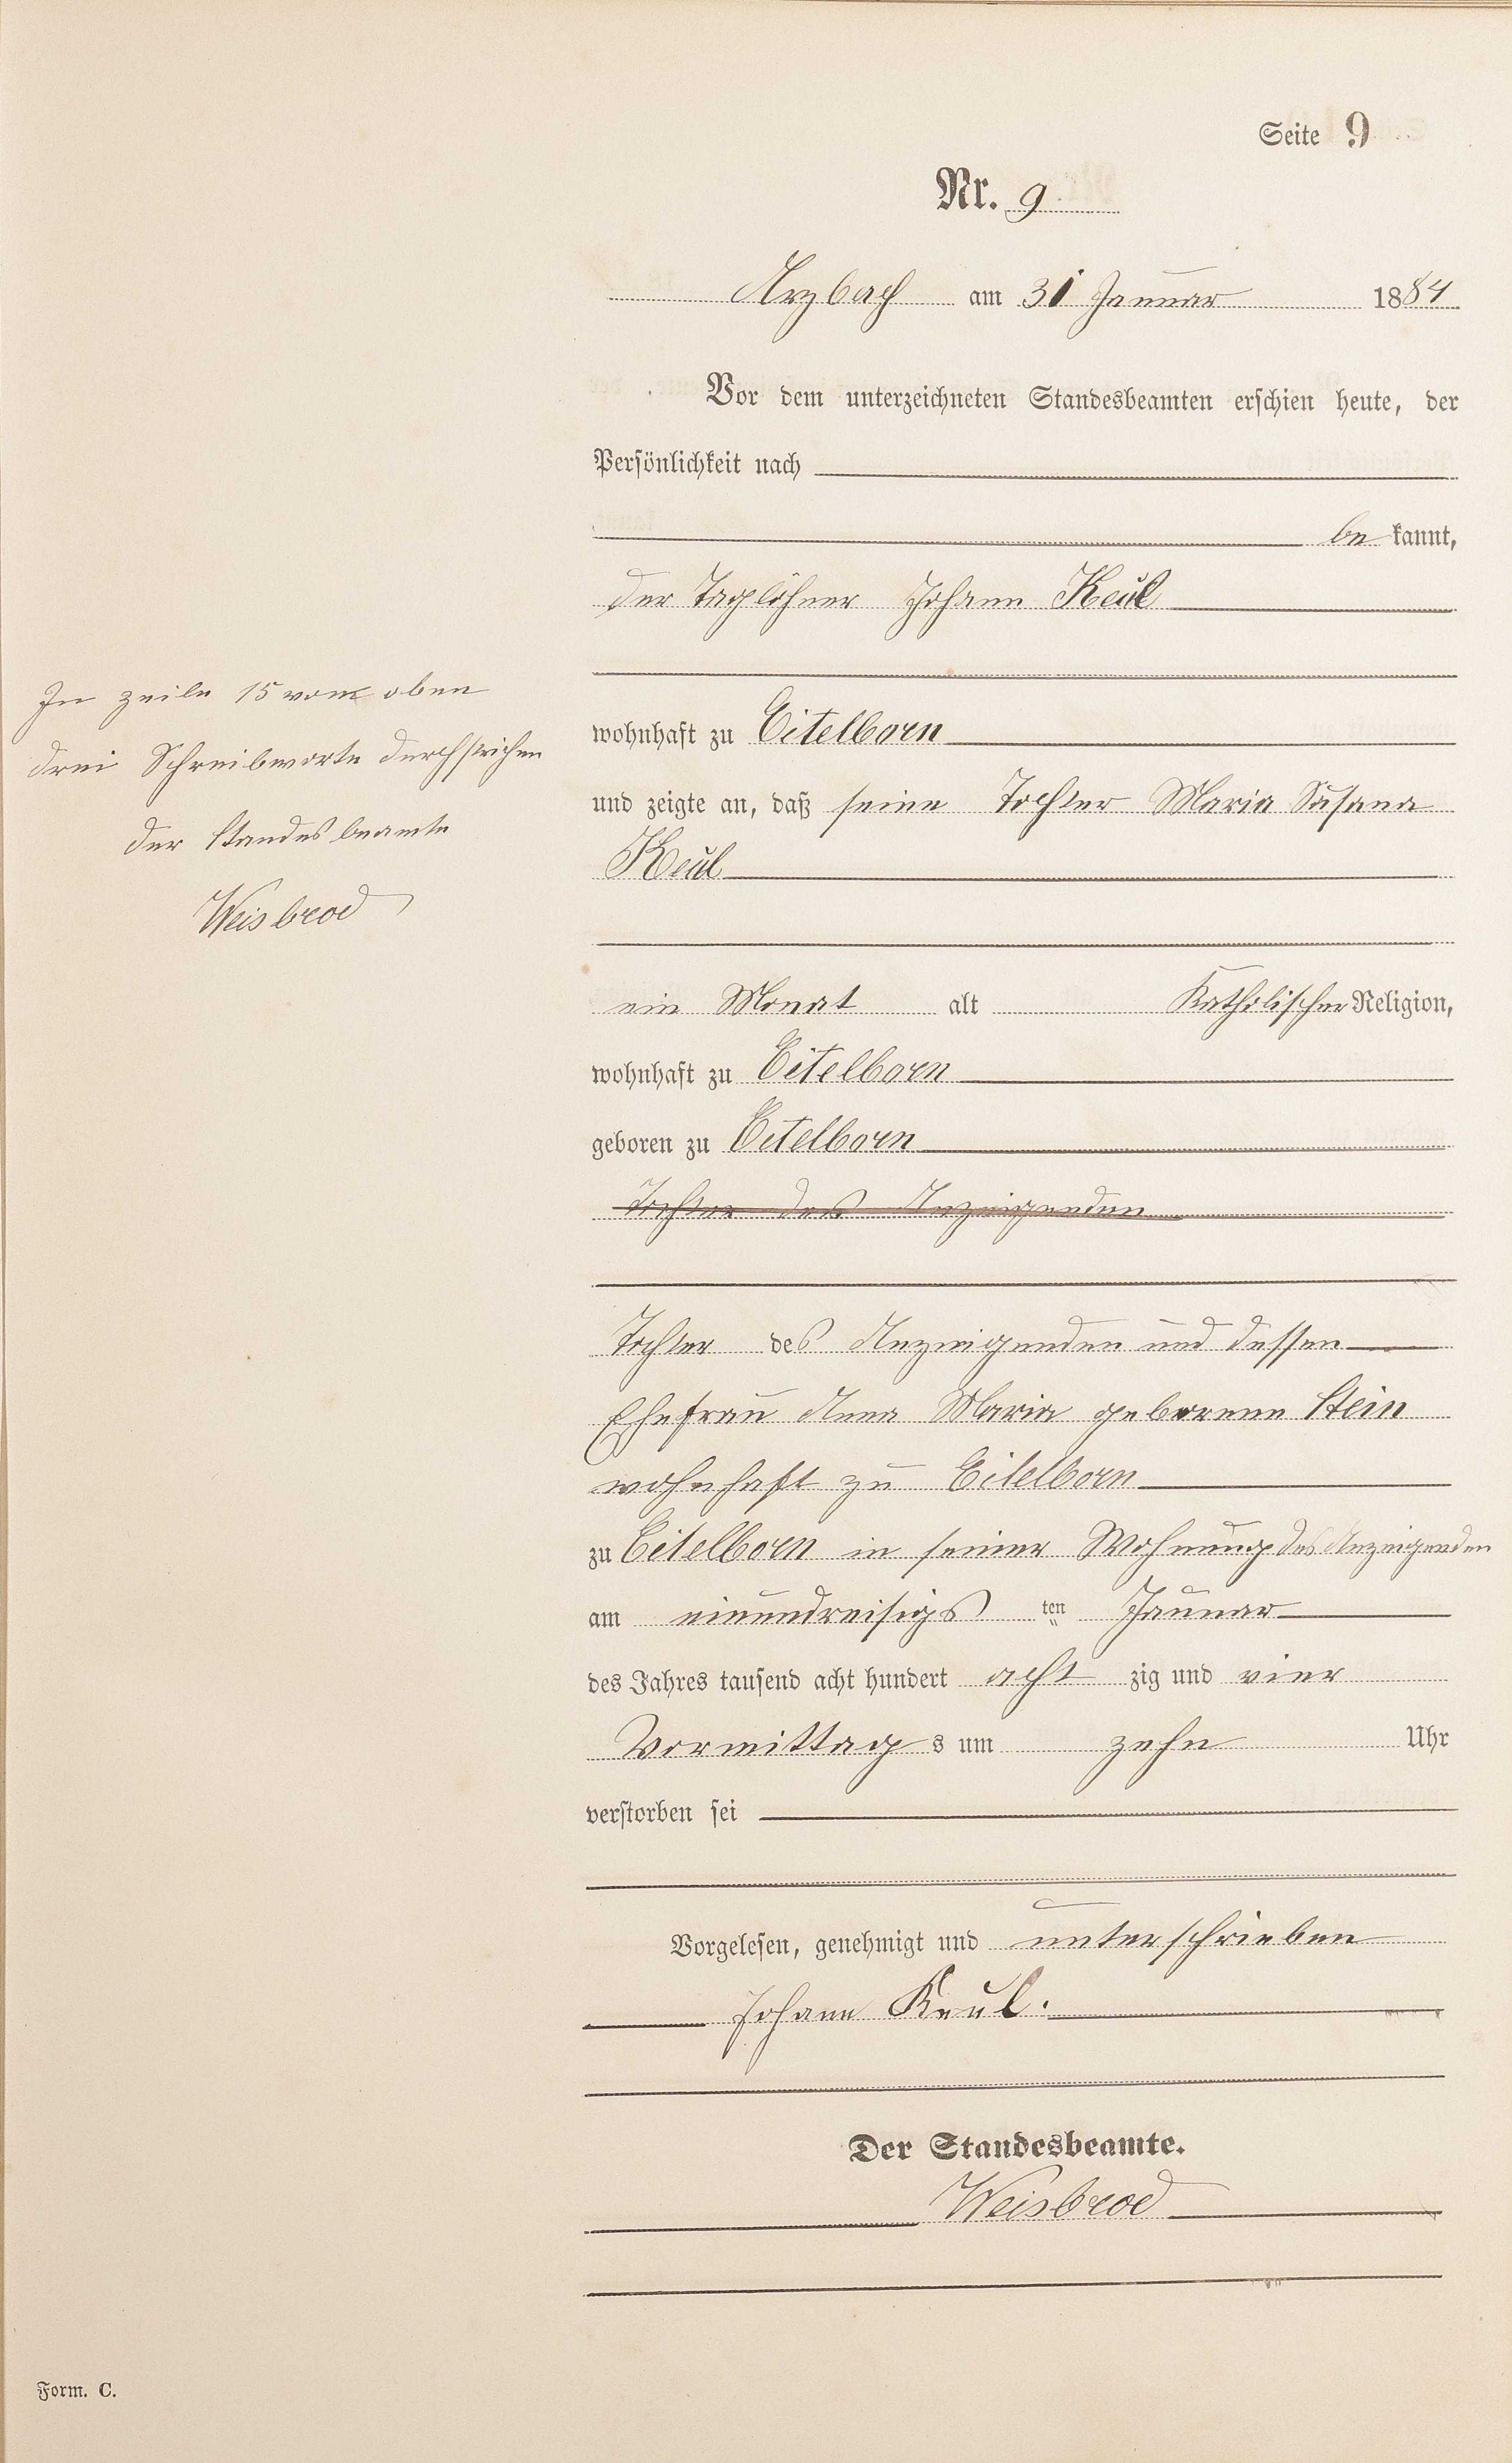 Seite 9
Nr. 9
Arzbach am 31 Januar 1884
Vor dem unterzeichneten Standesbeamten erschien heute, der
Persönlichkeit nach
be kannt,
der Taglöhner Johann Keul
wohnhaft zu Eitelborn
und zeigte an, daß seine Tochter Maria Susana
Keul
ein Monat alt Katholischer Religion,
wohnhaft zu Eitelborn
geboren zu Eitelborn
Tochter des Anzeigenden
Tochter des Anzeigenden und dessen
Ehefrau Anna Maria geborene Stein
wohnhaft zu Eitelborn
zu Eitelborn in seiner Wohnung des Anzeigenden
am einundreisigs ten Januar
des Jahres tausend acht hundert acht zig und vier
Vormittag s um zehn Uhr
verstorben sei
Vorgelesen, genehmigt und unterschrieben
Johann Keul.
Der Standesbeamte.
Weisbrod
In zeile 15 von oben
drei Schreibworte durchstrichen
der Standesbeamte
Weisbrod
Form. C.